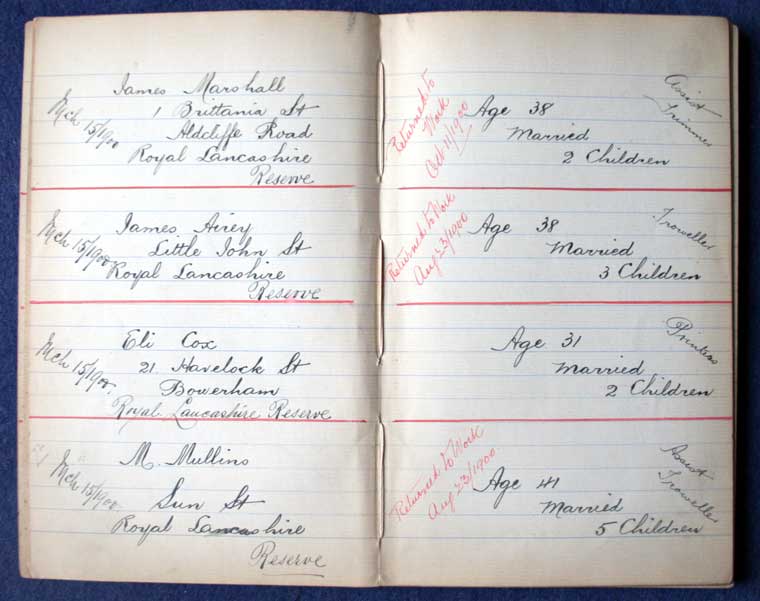 Mch 15/1900
James Marshall
1 Brittania St
Aldcliffe Road
Royal Lancashire
Reserve
Returned to
Work
Oct 11/1900
Age 38
Married
2 Children
Assist
Trimmer
Mch 15/1900
James Airey
Little John St
Royal Lancashire
Reserve
Returned to Work
Aug 23/1900
Age 38
Married
3 Children
Troweller
Mch 15/1900
Eli Cox
21 Havelock St
Bowerham
Royal Lancashire Reserve
Age 31
Married
2 Children
Printers
Mch 15/1900
M. Mullins
Sun St
Royal Lancashire
Reserve
Returned to Work
Aug 23/1900
Age 41
Married
5 Children
Assist
Troweller